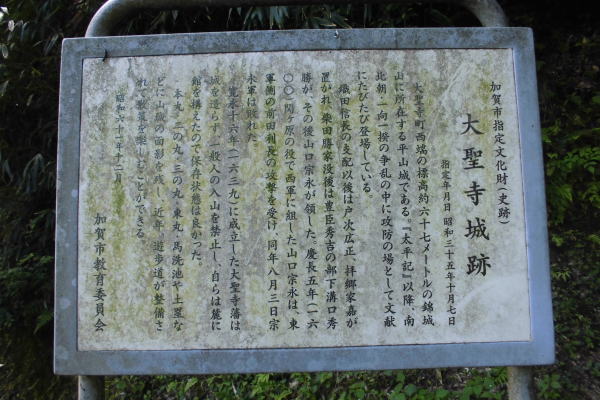 加賀市指定文化財(史跡)
大聖寺城跡
指定年月日 昭和三十五年十月七日
大聖寺町西端の標高約六十七メートルの錦城
山に所在する平山城である。『太平記』以降、南
北朝・一向一揆の争乱の中に攻防の場として文献
にたびたび登場している。
織田信長の支配以後は戸次広正、拝郷家嘉が
置かれ、柴田勝家没後は豊臣秀吉の部下溝口秀
勝が、その後山口宗永が領した。慶長五年(一六
〇〇)関ヶ原の役で西軍に組した山口宗永は、東
軍側の前田利長の攻撃を受け、同年八月三日宗
永軍は敗れた。
寛永十六年(一六三九)に成立した大聖寺藩は
城を造らず、一般人の入山を禁止し、自らは麓に
館を構えたので保存状態は良かった。
本丸、二の丸、三の丸、東丸、馬洗池や土塁な
どに山城の面影を残し、近年、遊歩道が整備さ
れて散策を楽しむことができる。
昭和六十一年十二月
加賀市教育委員会